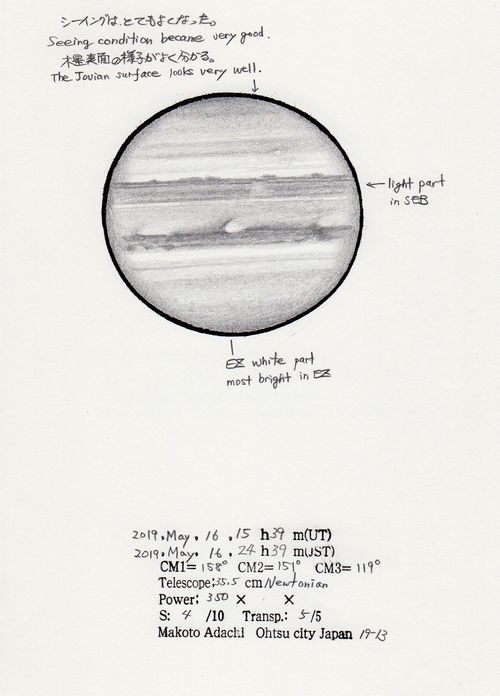 シーイングは、とてもよくなった。
Seeing condition became very good.
木星表面の様子がよく分かる。
The Jovian surface looks very well.
← light part
in SEB
EZ white part
most bright in EZ
2019. May. 16. 15 h 39 m(UT)
2019. May. 16. 24 h 39 m(JST)
CM1= 158° CM2= 151° CM3= 119°
Telescope; 35.5 cm/Newtonian
Power: 350 × ×
S: 4 /10 Transp.: 5/5
Makoto Adachi Ohtsu city Japan 19-13